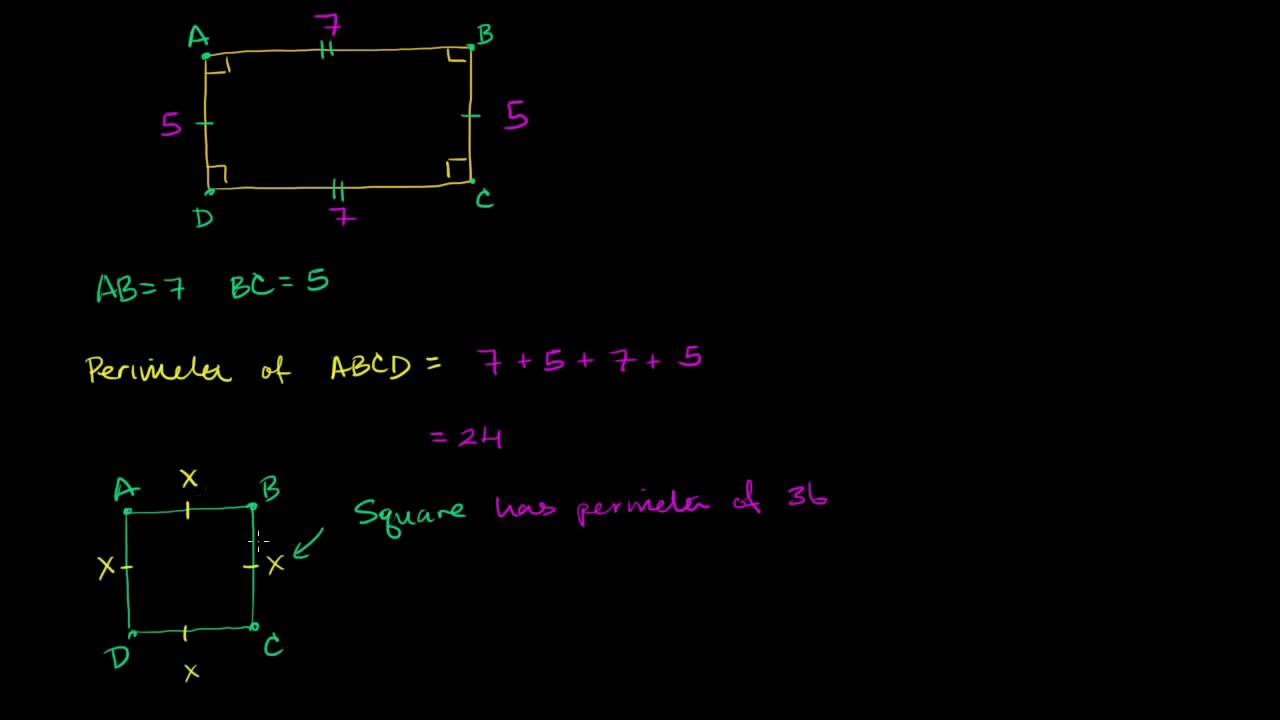 7
A B
5 5
D C
7
AB = 7 BC = 5
Perimeter of ABCD = 7 + 5 + 7 + 5
= 24
X
A B
Square has perimeter of 36
X X
D C
X